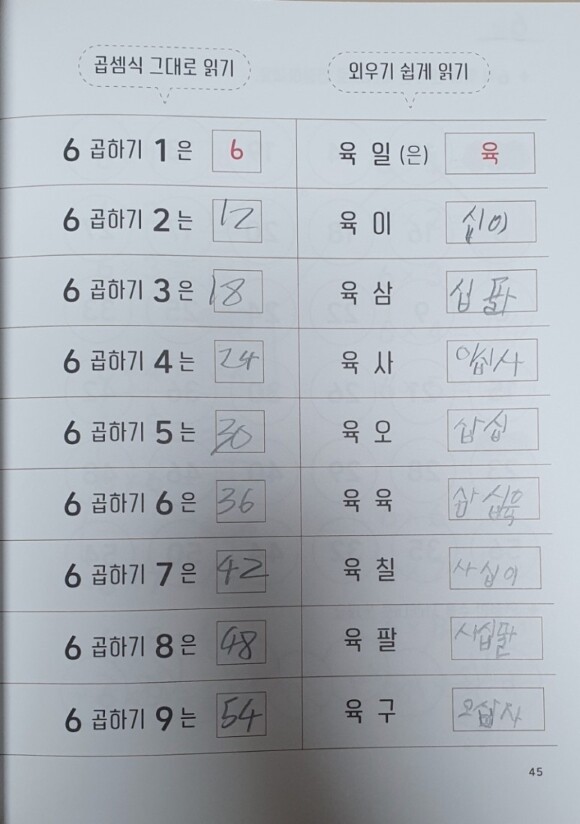 곱셈식 그대로 읽기 외우기 쉽게 읽기
6 곱하기 1 은 6 육 일 (은) 육
6 곱하기 2 는 12 육 이 십이
6 곱하기 3 은 18 육 삼 십팔
6 곱하기 4 는 24 육 사 이십사
6 곱하기 5 는 30 육 오 삼십
6 곱하기 6 은 36 육 육 삼십육
6 곱하기 7 은 42 육 칠 사십이
6 곱하기 8 은 48 육 팔 사십팔
6 곱하기 9 는 54 육 구
45